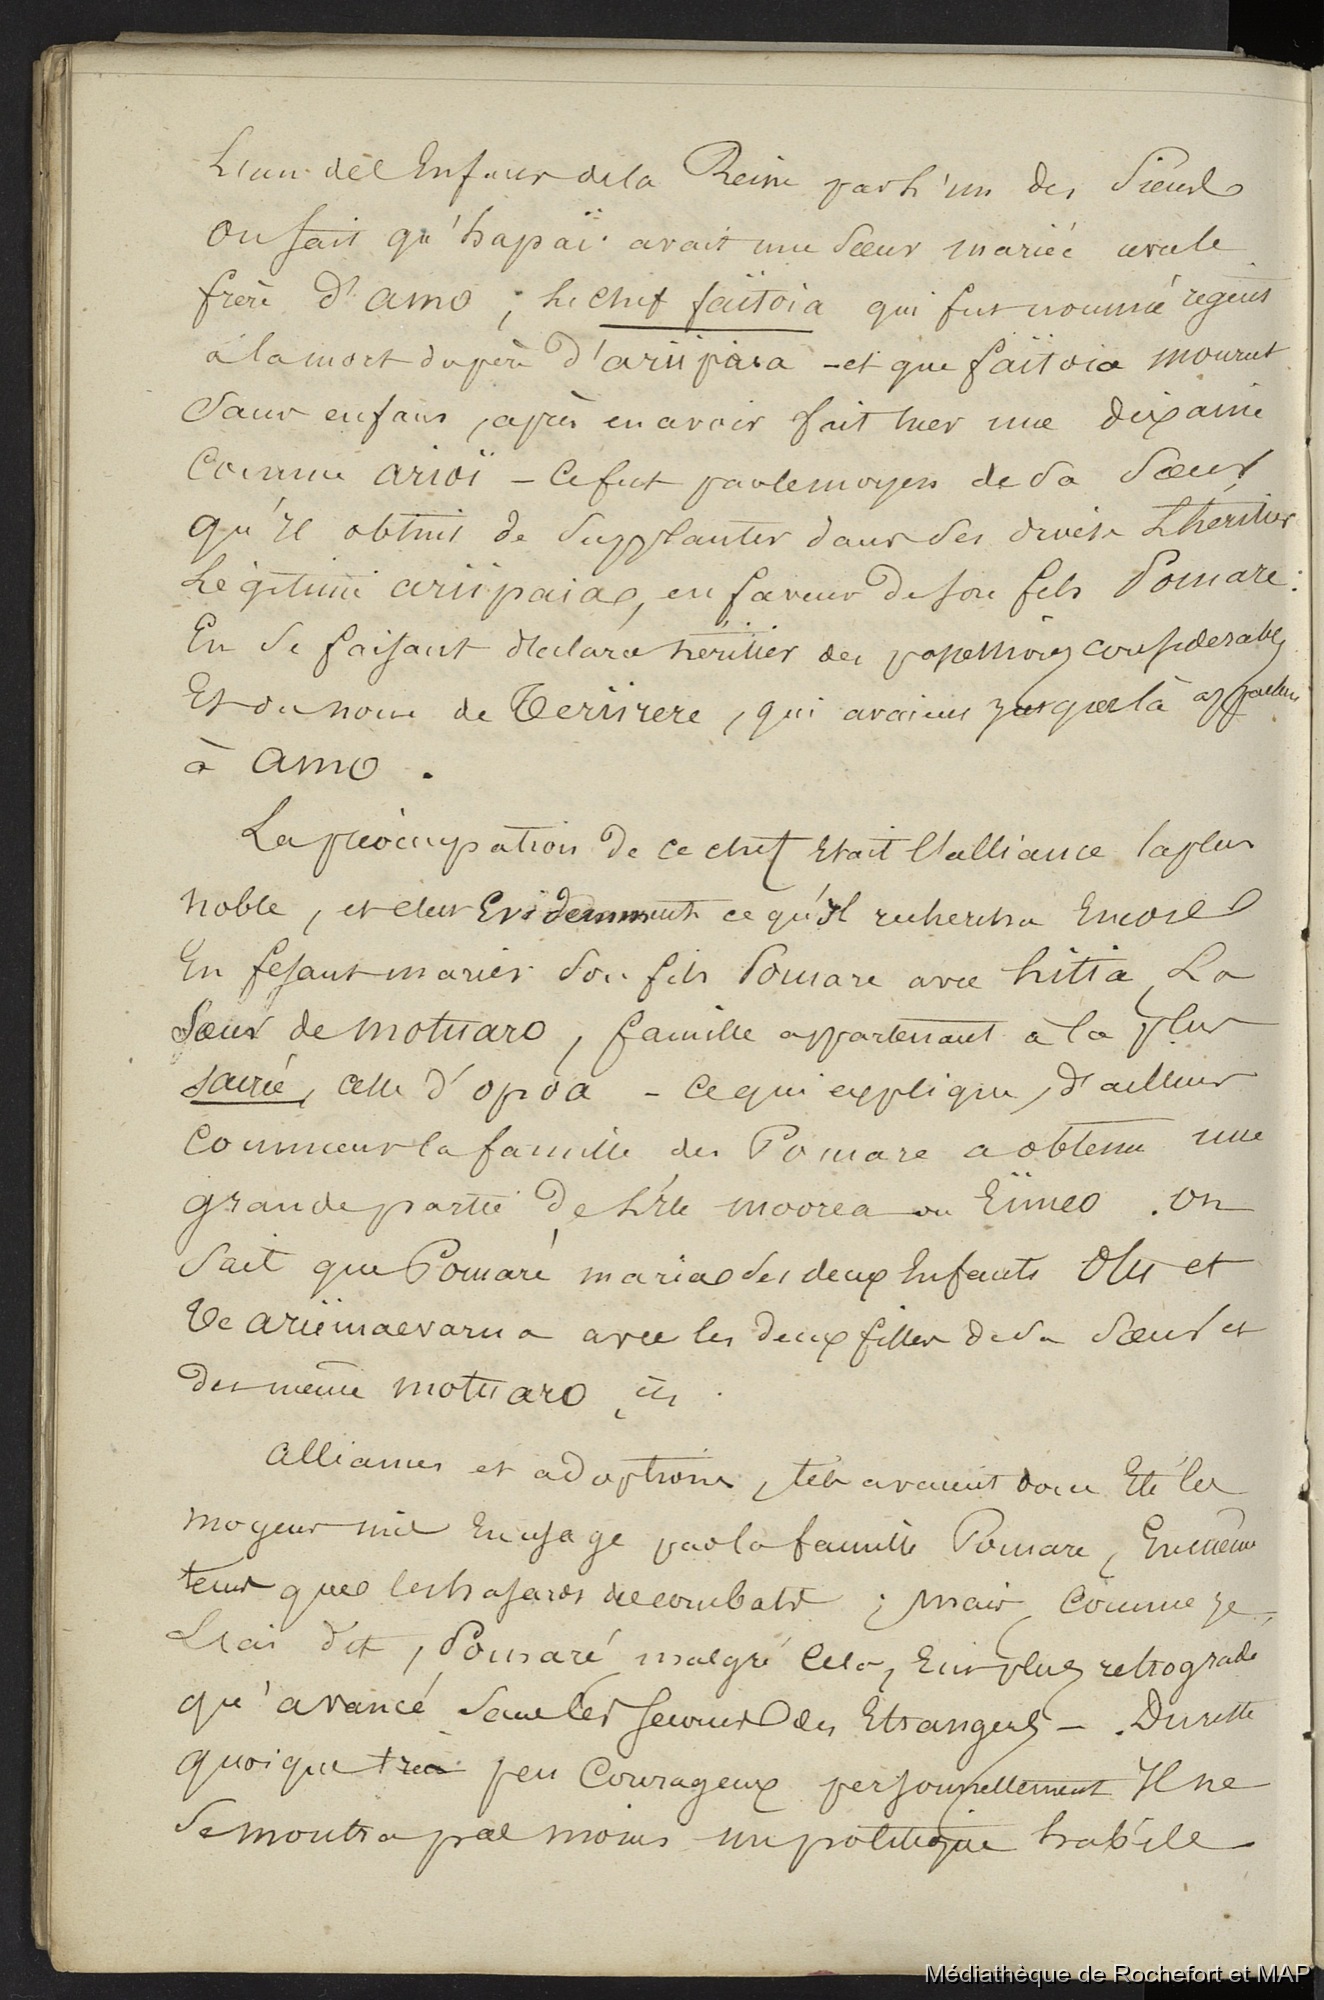 L'un des Enfans de la Reine par l'un des Siens
on sait qu'hapaï avait une Sœur mariée avec le
frère d'amo, le chef faïtoia qui fut nommé regent
à la mort du père d'ariipaea - et que faïtoia mourut
Sans enfans, après en avoir fait tuer une dixaine
Comme arioï - Ce fut par le moyen de Sa Sœur
qu'il obtint de Supplanter dans Ses droits L'héritier
Légitime ariipaia, en faveur de Son fils Pomare :
En Se faisant declarer héritier des possessions considerables
Et du nom de Teriirere, qui avaient jusques là appartenu
à amo .
La préocupation de ce chef Etait l'alliance la plus
noble, et c'est Evidemment ce qu'il rechercha Encore
En fesant marier Son fils Pomare avec hitia, La
Sœur de motuaro, famille appartenant à la plus
sacrée, celle d'opoa - ce qui explique, d'ailleurs
Comment la famille des Pomare a obtenu une
grande partie de L'ile moorea ou Eïmeo . On
Sait que Pomaré maria Ses deux Enfants Otu et
Te ariimaevarua avec les deux filles de Sa Sœur et
de même motuaro
alliances et adoptions, tels avaient donc Eté les
moyens mis En usage par la famille Pomare, En même
tems que les hasards de combats ; mais, Comme je
L'ai dit, Pomaré malgré Cela, Eut plus retrogradé
qu'avancé Sans les Secours des Etrangers - . Du reste
quoique très peu Courageux personnellement Il ne
Se montra pas moins un politique habile
Médiathèque de Rochefort et MAP